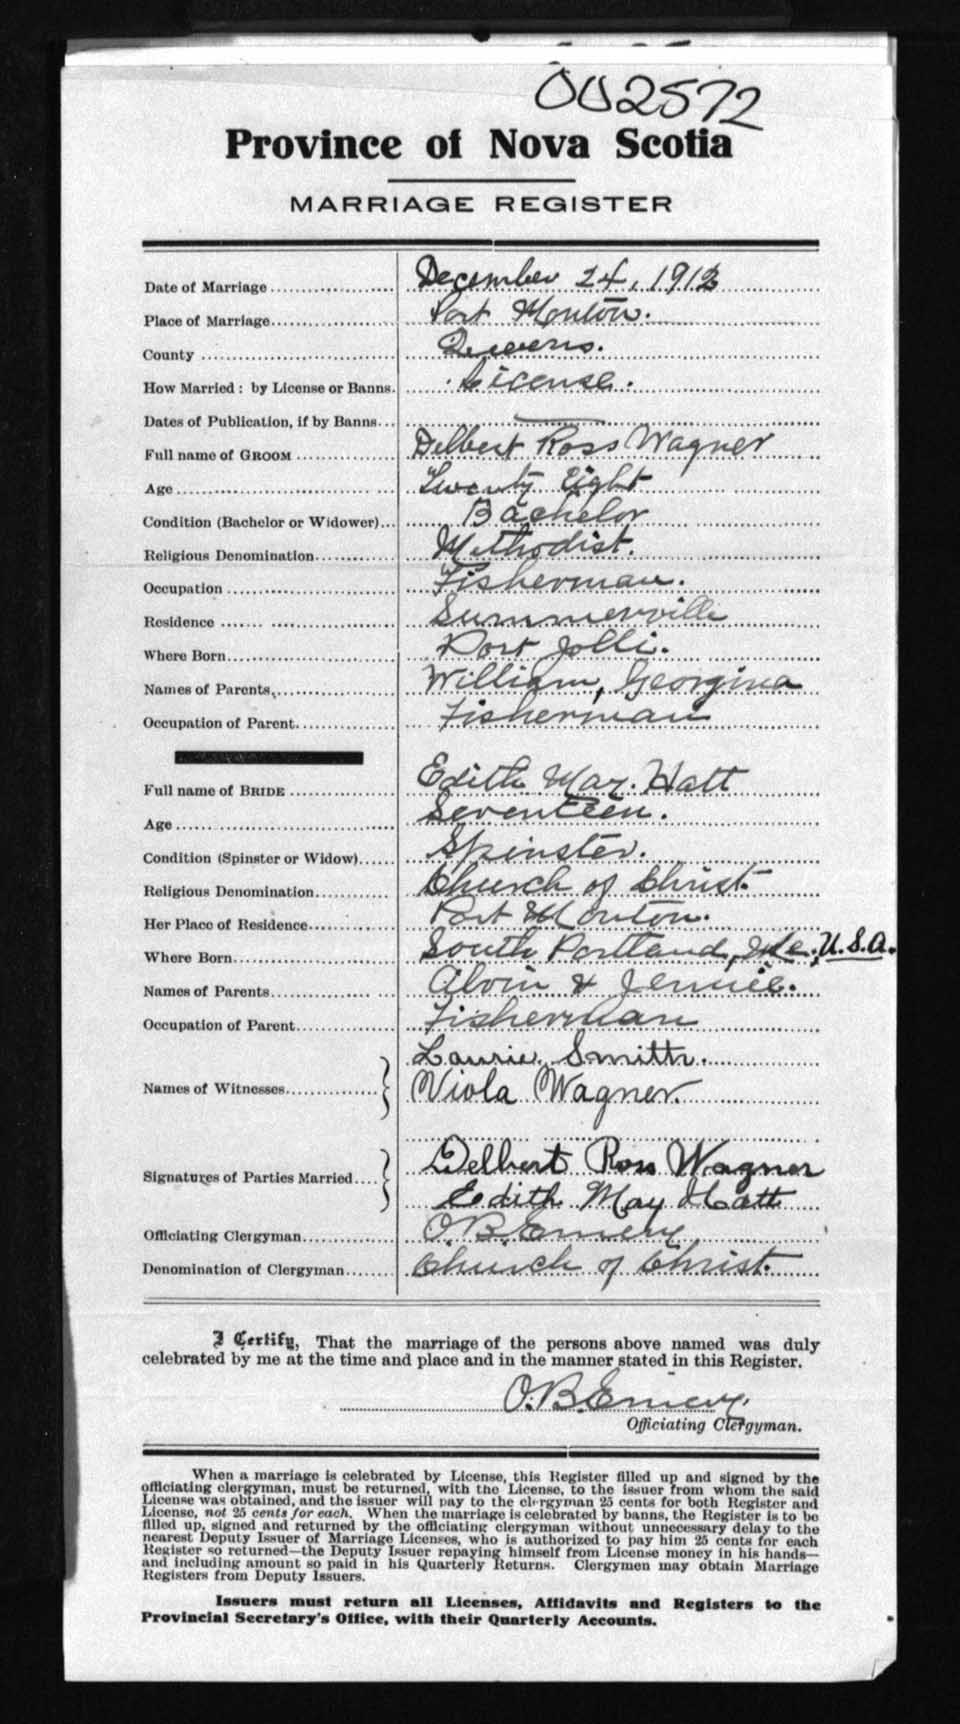 002572
Province of Nova Scotia
MARRIAGE REGISTER
Date of Marriage December 24, 1912
Place of Marriage Port Monton.
County Queens.
How Married: by License or Banns. License.
Dates of Publication, if by Banns —
Full name of GROOM Delbert Ross Wagner
Age Twenty Eight
Condition (Bachelor or Widower) Bachelor
Religious Denomination Methodist.
Occupation Fisherman.
Residence Summerville
Where Born Port Jolli.
Names of Parents William, Georgina
Occupation of Parent Fisherman
Full name of BRIDE Edith May. Hatt
Age Seventeen.
Condition (Spinster or Widow) Spinster.
Religious Denomination Church of Christ.
Her Place of Residence Port Monton.
Where Born South Portland, Me., U.S.A.
Names of Parents Alvin & Jennie.
Occupation of Parent Fisherman
Names of Witnesses Laurie Smith.
Viola Wagner.
Signatures of Parties Married Delbert Ross Wagner
Edith May Hatt
Officiating Clergyman O.B. Emery
Denomination of Clergyman Church of Christ.
I Certify, That the marriage of the persons above named was duly
celebrated by me at the time and place and in the manner stated in this Register.
O.B. Emery.
Officiating Clergyman.
When a marriage is celebrated by License, this Register filled up and signed by the
officiating clergyman, must be returned, with the License, to the issuer from whom the said
License was obtained, and the issuer will pay to the clergyman 25 cents for both Register and
License, not 25 cents for each. When the marriage is celebrated by banns, the Register is to be
filled up, signed and returned by the officiating clergyman without unnecessary delay to the
nearest Deputy Issuer of Marriage Licenses, who is authorized to pay him 25 cents for each
Register so returned—the Deputy Issuer repaying himself from License money in his hands—
and including amount so paid in his Quarterly Returns. Clergymen may obtain Marriage
Registers from Deputy Issuers.
Issuers must return all Licenses, Affidavits and Registers to the
Provincial Secretary's Office, with their Quarterly Accounts.